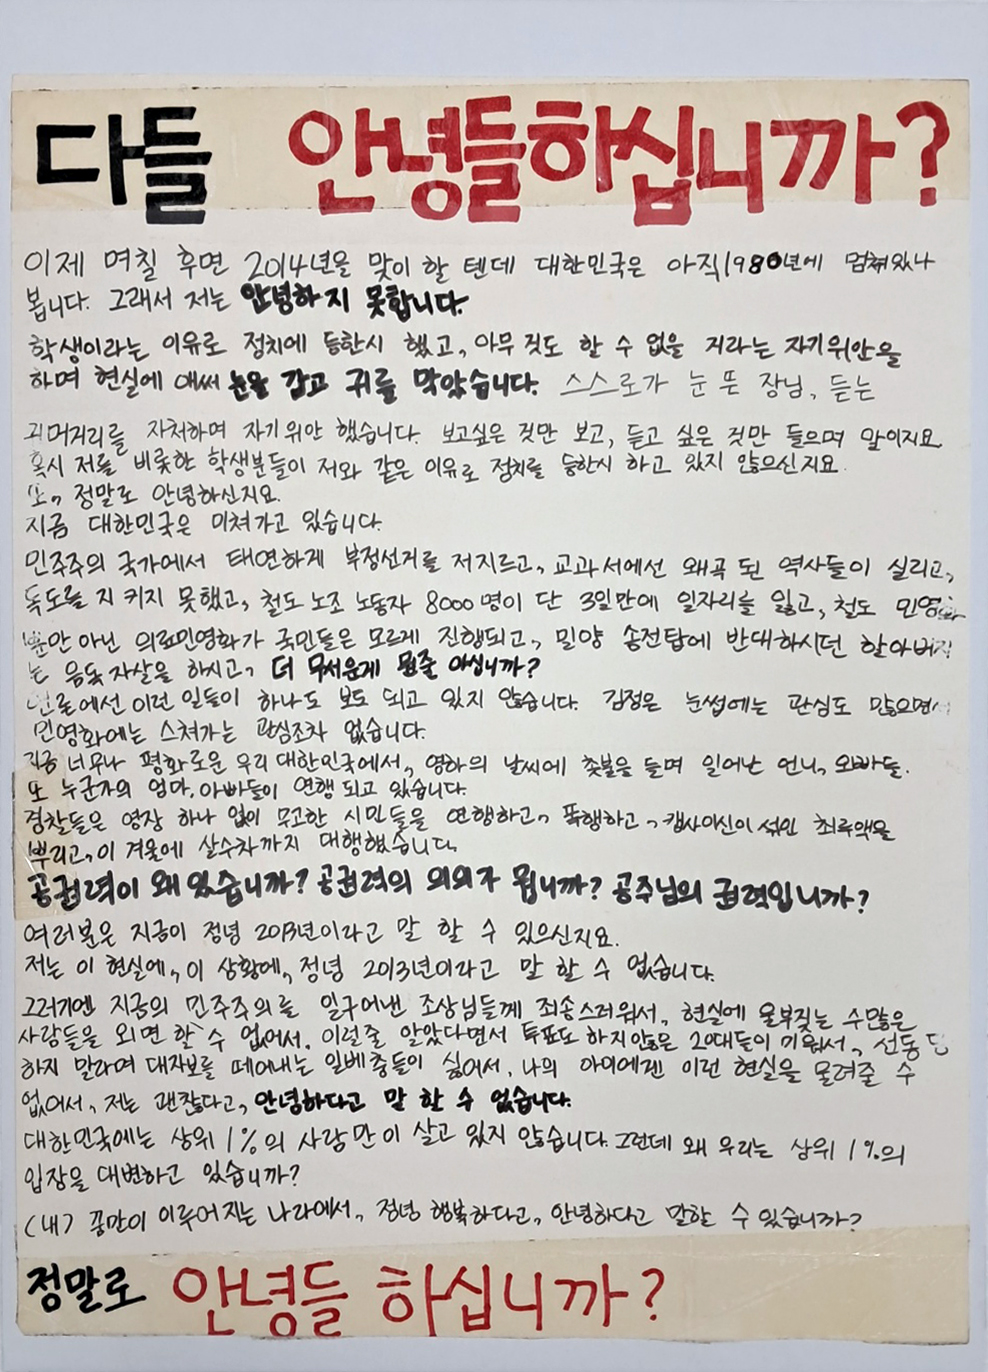 다들 안녕들하십니까?
이제 며칠 후면 2014년을 맞이 할 텐데 대한민국은 아직 1980년에 멈춰있나
봅니다. 그래서 저는 안녕하지 못합니다.
학생이라는 이유로 정치에 등한시 했고, 아무 것도 할 수 없을 거라는 자기위안을
하며 현실에 애써 눈을 감고 귀를 막았습니다. 스스로가 눈 뜬 장님, 듣는
귀머거리를 자처하며 자기위안 했습니다. 보고싶은 것만 보고, 듣고 싶은 것만 들으며 말이지요.
혹시 저를 비롯한 학생분들이 저와 같은 이유로 정치를 등한시 하고 있지 않으신지요.
또, 정말로 안녕하신지요.
지금 대한민국은 미쳐가고 있습니다.
민주주의 국가에서 태연하게 부정선거를 저지르고, 교과서에선 왜곡 된 역사들이 실리고,
독도를 지키지 못했고, 철도 노조 노동자 8000명이 단 3일만에 일자리를 잃고, 철도 민영화
뿐만 아닌 의료민영화가 국민들은 모르게 진행되고, 밀양 송전탑에 반대하시던 할아버지
는 음독 자살을 하시고, 더 무서운게 뭔줄 아십니까?
언론에선 이런 일들이 하나도 보도 되고 있지 않습니다. 김정은 눈썹에는 관심도 많으면서
민영화에는 스쳐가는 관심조차 없습니다.
지금 너무나 평화로운 우리 대한민국에서, 영하의 날씨에 촛불을 들며 일어난 언니, 오빠들.
또 누군가의 엄마, 아빠들이 연행 되고 있습니다.
경찰들은 영장 하나 없이 무고한 시민들을 연행하고, 폭행하고, 캡사이신이 섞인 최루액을
뿌리고, 이 겨울에 살수차까지 대행했습니다.
공권력이 왜 있습니까? 공권력의 의의가 뭡니까? 공주님의 권력입니까?
여러분은 지금이 정녕 2013년이라고 말 할 수 있으신지요.
저는 이 현실에, 이 상황에, 정녕 2013년이라고 말 할 수 없습니다.
그러기엔 지금의 민주주의를 일구어낸 조상님들께 죄송스러워서, 현실에 울부짖는 수많은
사람들을 외면 할 수 없어서, 이럴줄 알았다면서 투표도 하지않은 20대들이 미워서, 선동 당
하지 말라며 대자보를 떼어내는 일베충들이 싫어서, 나의 아이에겐 이런 현실을 물려줄 수
없어서, 저는 괜찮다고, 안녕하다고 말 할 수 없습니다.
대한민국에는 상위 1%의 사람만이 살고 있지 않습니다. 그런데 왜 우리는 상위 1%의
입장을 대변하고 있습니까?
(내) 꿈만이 이루어지는 나라에서, 정녕 행복하다고, 안녕하다고 말할 수 있습니까?
정말로 안녕들 하십니까?